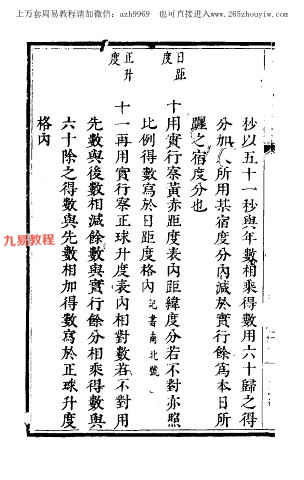 上万套周易教程请加微信：azh9969　也可直接进入www.265zhouyiw.com
抄以五十一秒與年數相乘得數用六十歸之得
分加入所用某宿度分內減於實行餘爲本日所
躔之宿度分也
日距度
十用實行察黃赤距度表內距緯度分若不對亦照
比例得數寫於日距度格內記書南北號
正升度
十一再用實行察正球升度表內相對數若不對用
先數與後數相減餘數與實行餘分相乘得數與
六十除之得數與先數相加得數寫於正球升度
格內
九易教程